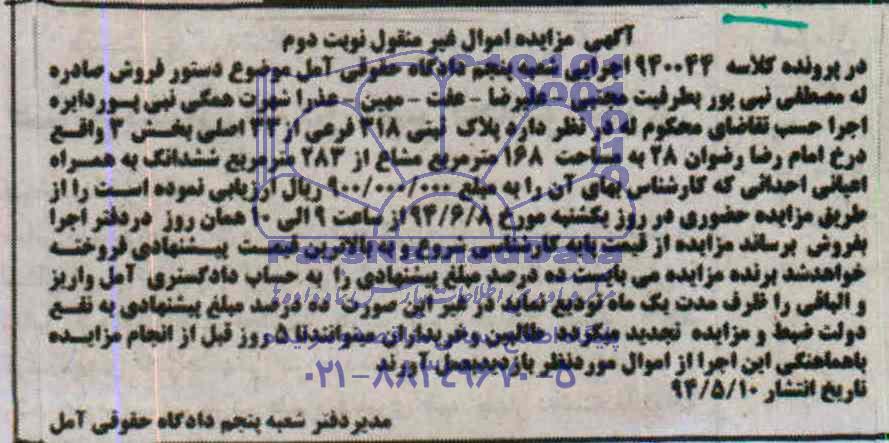 آگهی مزایده اموال غیر منقول نوبت دوم
در پرونده کلاسه ۹۴۰۰۴۴ اجرایی شعبه پنجم دادگاه حقوقی آمل موضوع دستور فروش صادره
له مصطفی نبی پور بطرفیت مجتبی - علیرضا - عفت - مهین - عذرا شهرت همگی نبی پور دایره
اجرا حسب تقاضای محکوم له در نظر دارد پلاک ثبتی ۳۱۸ فرعی از ۳۳ اصلی بخش ۳ واقع
درخ امام رضا رضوان ۲۸ به مساحت ۱۶۸ مترمربع مشاع از ۲۸۳ مترمربع ششدانگ به همراه
اعیانی احداثی که کارشناس بهای آن را به مبلغ ۹۰۰/۰۰۰/۰۰۰ ریال ارزیابی نموده است را از
طریق مزایده حضوری در روز یکشنبه مورخ ۹۴/۶/۸ از ساعت ۹ الی ۱۰ همان روز دردفتر اجرا
بفروش برساند مزایده از قیمت پایه کارشناسی شروع و به بالاترین قیمت پیشنهادی فروخته
خواهدشد برنده مزایده می بایست ده درصد مبلغ پیشنهادی را به حساب دادگستری آمل واریز
و الباقی را ظرف مدت یک ماه تودیع نماید در غیر این صورت ده درصد مبلغ پیشنهادی به نفع
دولت ضبط و مزایده تجدید میگردد طالبین و خریداران میتوانند تا ۵ روز قبل از انجام مزایده
باهماهنگی این اجرا از اموال موردنظر بازدیدبعمل آورند
تاریخ انتشار ۹۴/۵/۱۰
مدیردفتر شعبه پنجم دادگاه حقوقی آمل
ParsNamadData
۰۲۱-۸۸۳۴۹۶۷۰-۵